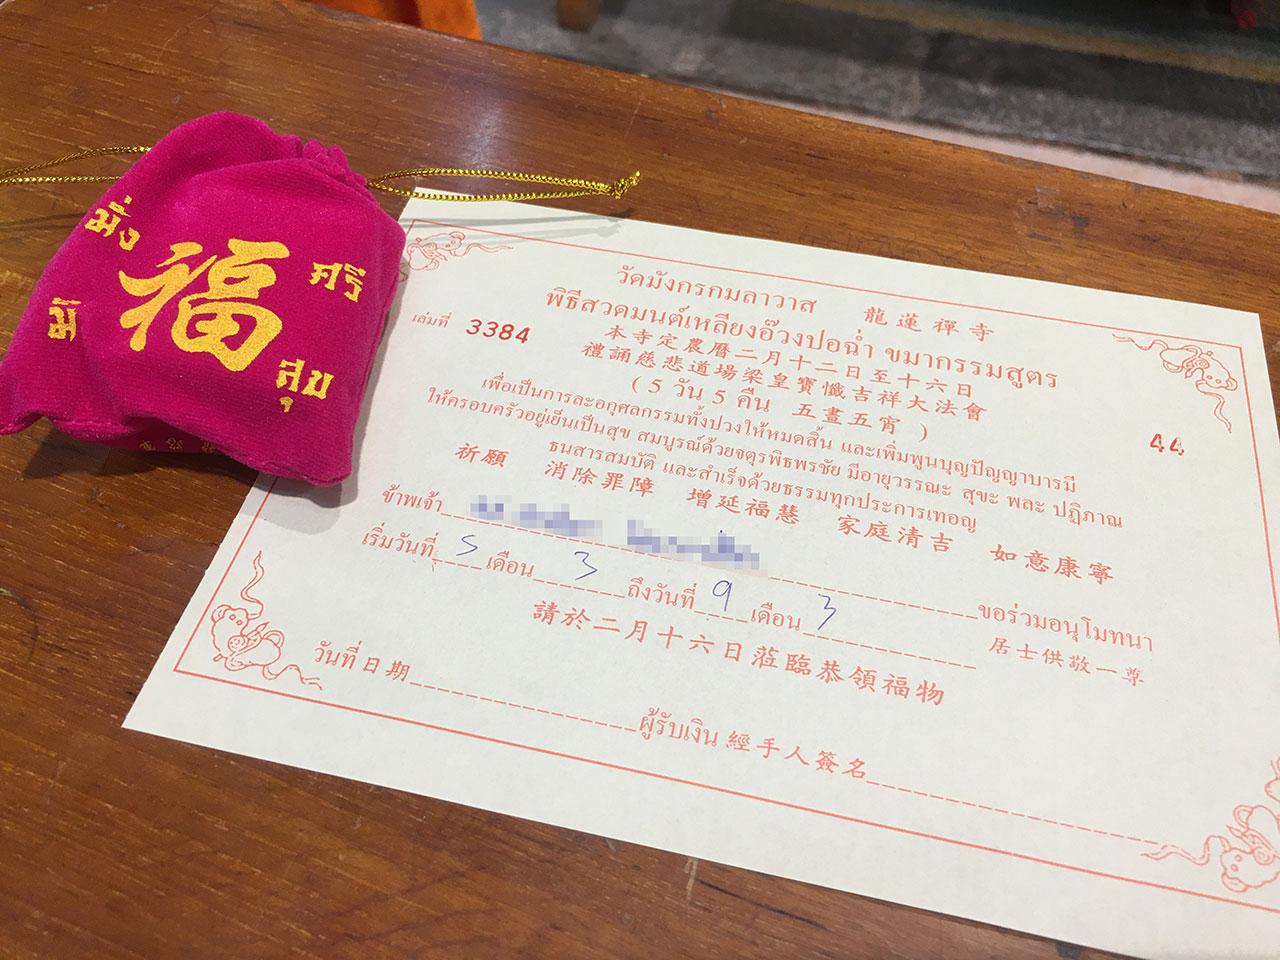 มั่ง
มี
福
ศรี
สุข
วัดมังกรกมลาวาส 龍蓮禪寺
พิธีสวดมนต์เหลียงอ๊วงปอฉ่ำ ขมากรรมสูตร
เล่มที่ 3384
本寺定農曆二月十二日至十六日
禮誦慈悲道場梁皇寶懺吉祥大法會
( 5 วัน 5 คืน 五晝五宵 )
44
เพื่อเป็นการละอกุศลกรรมทั้งปวงให้หมดสิ้น และเพิ่มพูนบุญปัญญาบารมี
ให้ครอบครัวอยู่เย็นเป็นสุข สมบูรณ์ด้วยจตุรพิธพรชัย มีอายุวรรณะ สุขะ พละ ปฏิภาณ
ธนสารสมบัติ และสำเร็จด้วยธรรมทุกประการเทอญ
祈願 消除罪障 增延福慧 家庭清吉 如意康寧
ข้าพเจ้า ขอร่วมอนุโมทนา
เริ่มวันที่ 5 เดือน 3 ถึงวันที่ 9 เดือน 3 居士供敬一尊
請於二月十六日蒞臨恭領福物
วันที่ 日期 ผู้รับเงิน 經手人簽名